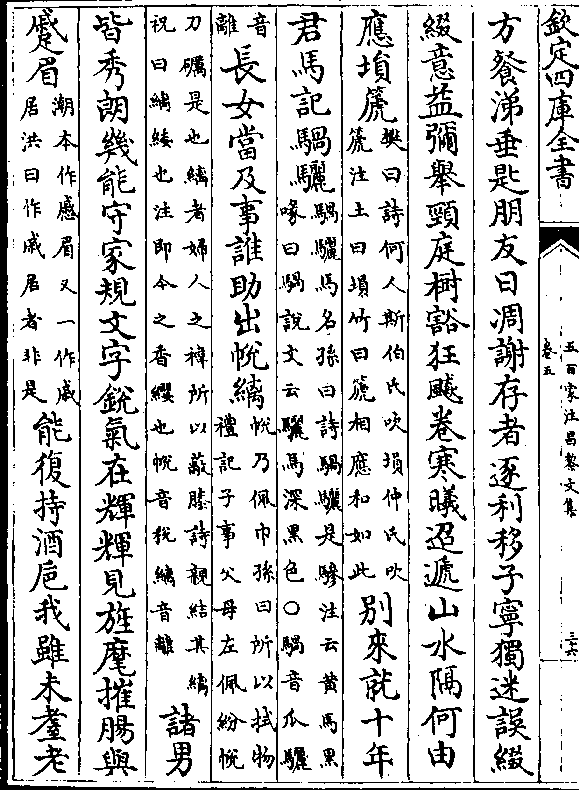 欽定四庫全書
五百家注昌黎文集
卷五
三六
方餐涕垂匙朋友日凋謝存者逐利移子寧獨迷誤綴
綴意益彌舉頸庭樹豁狂飈卷寒曦迢遞山水隔何由
應塤篪
樊曰詩何人斯伯氏吹塤仲氏吹
篪注土曰塤竹曰篪相應和如此
別來就十年
君馬記騧驪
騧驪馬名孫曰詩騧驪是驂注云黄馬黒
喙曰騧說文云驪馬深黒色○騧音瓜驪
音
離
長女當及事誰助出帨縭
帨乃佩巾孫曰所以拭物
禮記子事父母左佩紛帨
刀礪是也縭者婦人之褘所以蔽膝詩親結其縭
祝曰縭緌也注即今之香纓也帨音税縭音離
諸男
皆秀朗幾能守家規文字銳氣在輝輝見旌麾摧腸與
蹙眉
潮本作慼眉又一作戚
居洪曰作戚居者非是
能復持酒巵我雖未耋老